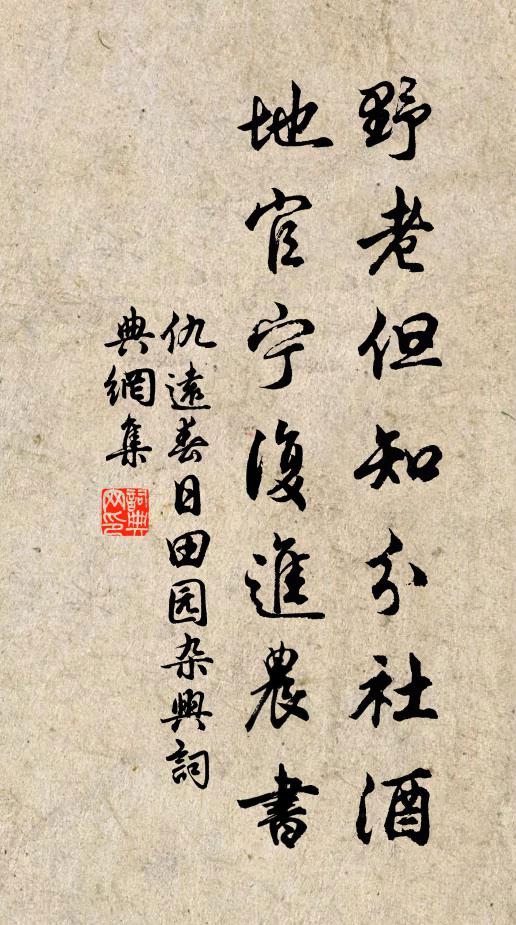 野老但知分社酒
地官宁復進農書
仇遠春日田园杂興詞
典網集
詞典
网印